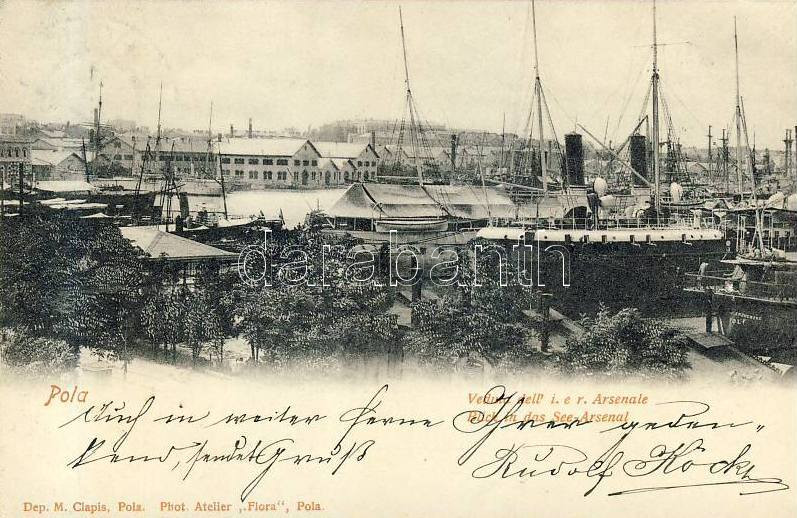 darabanth
Pola
Veduta dell' i. e r. Arsenale
Blick in das See-Arsenal
Auch in weiter Ferne Ihrer geden-
kend, sendet Gruß Rudolf Köckh
Dep. M. Clapis, Pola. Phot. Atelier „Flora“, Pola.